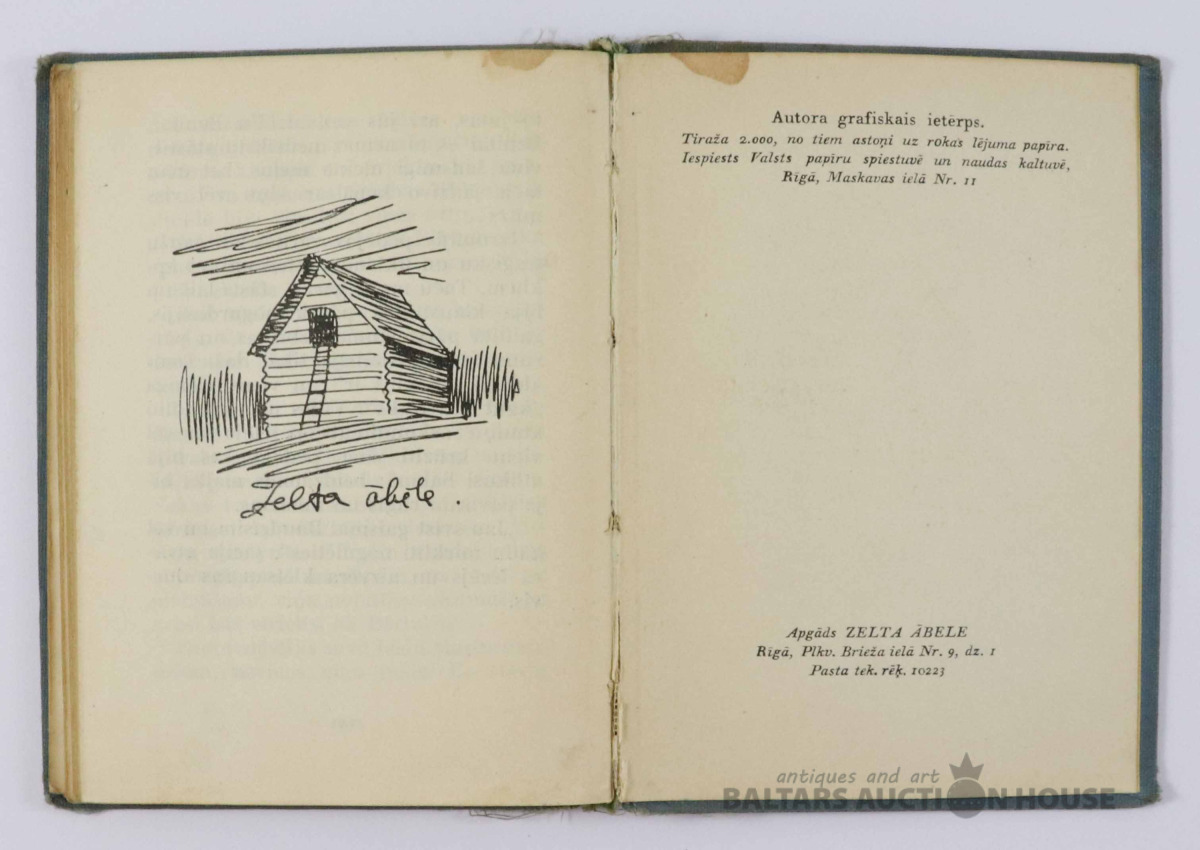 Zelta ābele.
Autora grafiskais ietērps.
Tiraža 2.000, no tiem astoņi uz rokas lējuma papīra.
Iespiests Valsts papīru spiestuvē un naudas kaltuvē,
Rīgā, Maskavas ielā Nr. 11
Apgāds ZELTA ĀBELE
Rīgā, Plkv. Brieža ielā Nr. 9, dz. 1
Pasta tek. rēķ. 10223
antiques and art
BALTARS AUCTION HOUSE